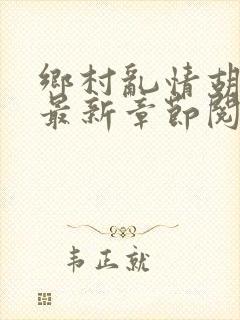 鄉村亂情胡
最新章節閱
韦正就